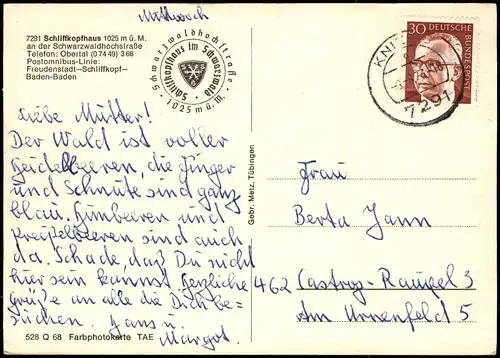 Mittwoch
7291 Schliffkopfhaus 1025 m ü. M.
an der Schwarzwaldhochstraße
Telefon: Obertal (07449) 366
Postomnibus-Linie:
Freudenstadt–Schliffkopf–
Baden-Baden
Schwarzwaldhochstraße
Schliffkopfhaus im Schwarzwald
1025 m ü. M.
30
DEUTSCHE
BUNDESPOST
7291
Liebe Mutter!
Der Wald ist voller
Heidelbeeren, die Finger
und Schnute sind ganz
blau. Himbeeren und
Preißelbeeren sind auch
da. Schade, daß Du nicht
hier sein kannst. Herzliche
Grüße an alle die Dich be=
suchen. Hans u.
Margot.
Gebr. Metz, Tübingen
Frau
Berta Jann
462 Castrop-Rauxel 3
Am Urnenfeld 5
528 Q 68 Farbphotokarte TAE